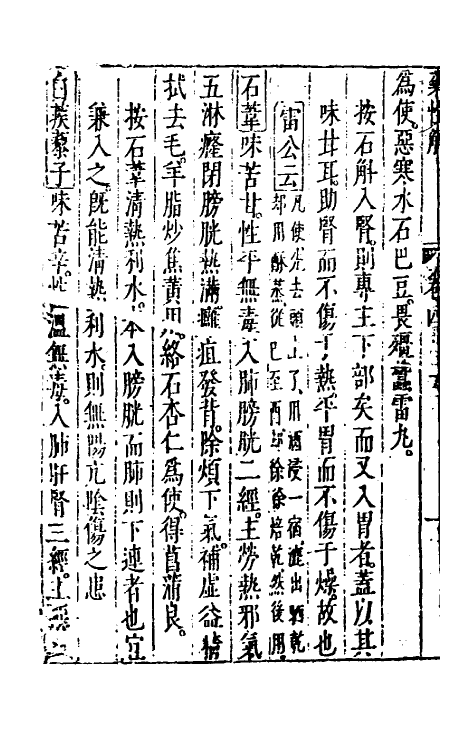 為使。惡寒水石巴豆。畏殭蠶雷丸。
按石斛入腎。則專主下部矣。而又入胃者。蓋以其
味甘耳。助腎而不傷于熱。平胃而不傷于燥。故也
雷公云凡使先去頭土了用酒浸一宿漉出晒乾
却用酥蒸從巳至酉却徐徐焙乾然後用
石葦味苦甘。性平無毒。入肺膀胱二經。主勞熱邪氣
五淋癃閉膀胱熱滿。癰疽發背。除煩下氣。補虛益精
拭去毛。羊脂炒焦黃用。絡石杏仁為使。得菖蒲良。
按石葦清熱利水。本入膀胱而肺則下連者也宜
兼入之。既能清熱利水。則無陽亢陰傷之患
白蒺藜子味苦辛。性溫無毒。入肺肝腎三經。主惡